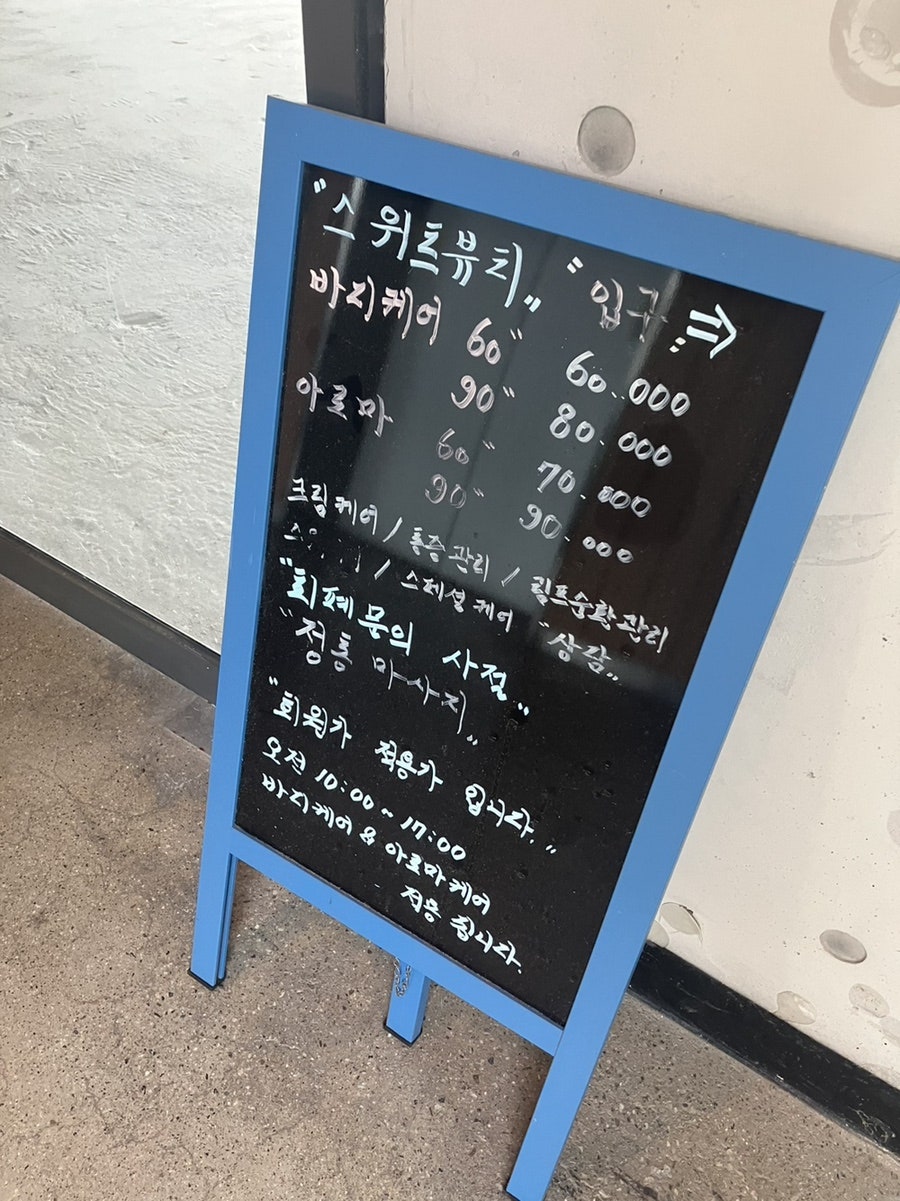 "스위트뷰티" "입구" ⇒
바디케어 60" 60.000
90" 80.000
아로마 60" 70.000
90" 90.000
크림케어 / 통증관리 / 림프순환관리
/ 스페셜케어 "상담"
"퇴폐문의 사절"
"정통 마사지"
"회원가 적용가 입니다."
오전 10:00~17:00
바디케어 & 아로마케어
적용 됩니다.